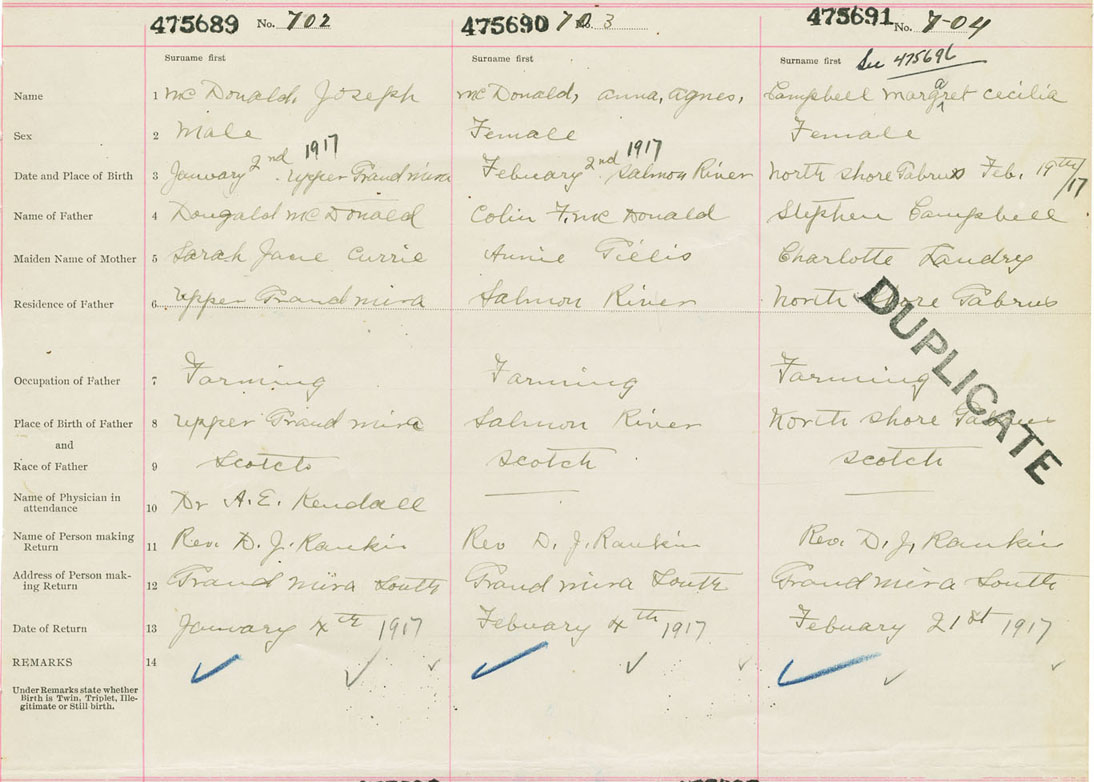 475689 No. 702 475690 No. 703 475691 No. 704
Surname first Surname first Surname first See 475696
Name 1 McDonald, Joseph McDonald, anna, agnes, Campbell margaret cecilia
Sex 2 Male Female Female
Date and Place of Birth 3 January 2nd 1917 . Upper Grand mira Febuary 2nd 1917 Salmon River North shore Gabrus Feb. 19th/17
Name of Father 4 Dougald McDonald Colin F. McDonald Stephen Campbell
Maiden Name of Mother 5 Sarah Jane Currie Annie Gillis Charlotte Landry
Residence of Father 6 Upper Grand mira Salmon River North Shore Gabrus
DUPLICATE
Occupation of Father 7 Farming Farming Farming
Place of Birth of Father 8 Upper Grand mira Salmon River North shore
and
Race of Father 9 Scotch Scotch Scotch
Name of Physician in
attendance 10 Dr A. E. Kendall
Name of Person making
Return 11 Rev. D. J. Rankin Rev D. J. Rankin Rev. D. J. Rankin
Address of Person mak-
ing Return 12 Grand mira South Grand mira South Grand mira South
Date of Return 13 January 4th 1917 Febuary 4th 1917 Febuary 21st 1917
REMARKS 14
Under Remarks state whether
Birth is Twin, Triplet, Ille-
gitimate or Still birth.